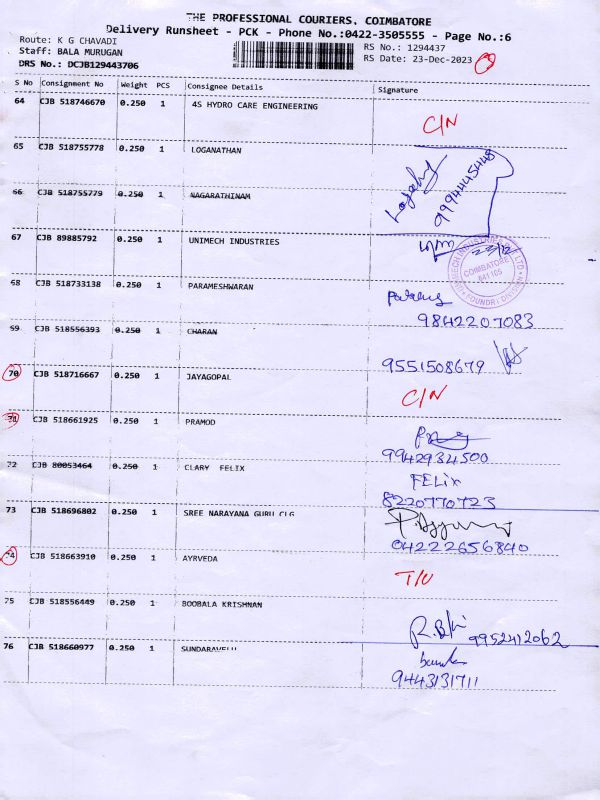 THE PROFESSIONAL COURIERS, COIMBATORE
Delivery Runsheet - PCK - Phone No.:0422-3505555 - Page No.:6
Route: K G CHAVADI RS No.: 1294437
Staff: BALA MURUGAN RS Date: 23-Dec-2023
DRS No.: DCJB129443706
S No Consignment No Weight PCS Consignee Details Signature
64 CJB 518746670 0.250 1 4S HYDRO CARE ENGINEERING
C/N
65 CJB 518755778 0.250 1 LOGANATHAN
9994445448
66 CJB 518755779 0.250 1 NAGARATHINAM
67 CJB 89885792 0.250 1 UNIMECH INDUSTRIES
COIMBATORE
641105
FOUNDRY DIVISION
68 CJB 518733138 0.250 1 PARAMESHWARAN
9842207083
69 CJB 518556393 0.250 1 CHARAN
9551508679
70 CJB 518716667 0.250 1 JAYAGOPAL
C/N
71 CJB 518661925 0.250 1 PRAMOD
9942934500
72 CJB 80053464 0.250 1 CLARY FELIX
FELix
8220770723
73 CJB 518696802 0.250 1 SREE NARAYANA GURU CLG
04222656840
74 CJB 518663910 0.250 1 AYRVEDA
T/U
75 CJB 518556449 0.250 1 BOOBALA KRISHNAN
9952412062
76 CJB 518660977 0.250 1 SUNDARAVELU
9443131711